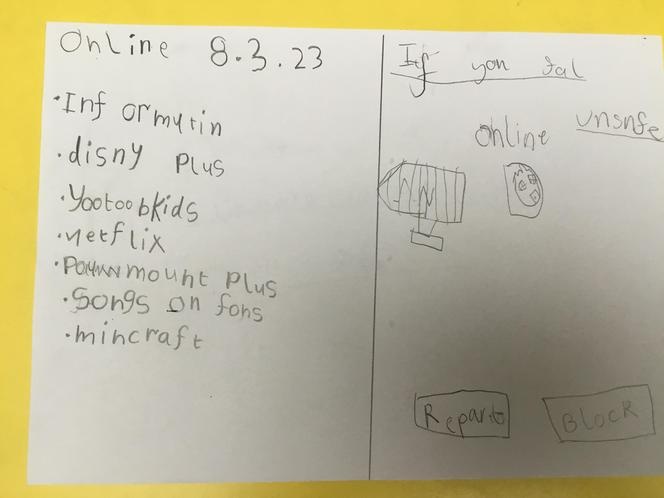 Online 8.3.23
·Inf ormutin
·disny Plus
·Yootoobkids
·netflix
mount Plus
·Songs on fons
·mincraft
If you fal
online unsafe
Reparto
BLOCK